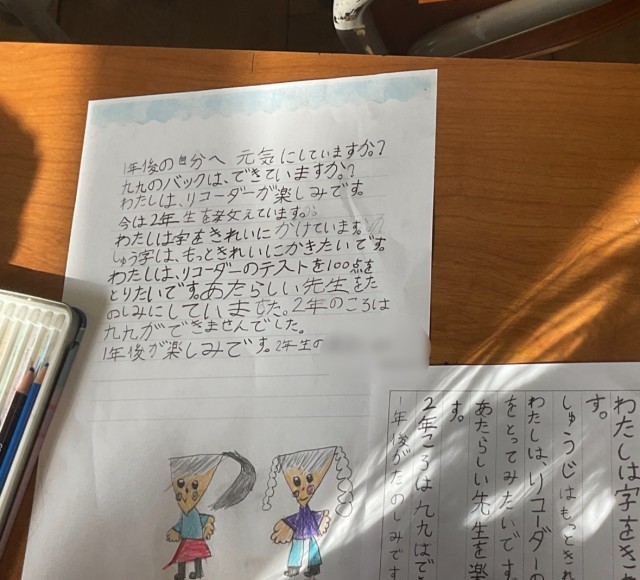 1年後の自分へ 元気にしていますか。?
九九のバックは、できていますか。?
わたしは、リコーダーが楽しみです。
今は2年生を
わたしは字をきれいにかけています。
しゅう字は、もっときれいにかきたいです。
わたしは、リコーダーのテストを100点を
とりたいです。あたらしい先生をた
のしみにしていました。2年のころは
九九ができませんでした。
1年後が楽しみです。2年生の
わたしは字をき
す。
しゅうじはもっときれ
わたしは、リコーダー
をとってみたいです
あたらしい先生を楽
す。
2年ころは九九はで
1年後がたのしみです